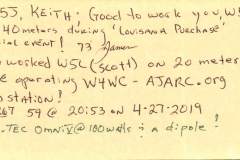 5J, KEITH; GOOD TO WORK YOU, W5
40 METERS DURING "LOUISANA PURCHASE"
CIAL EVENT! 73 James
O WORKED W5L (SCOTT) ON 20 METER
E OPERATING W4WC - AJARC.ORG
STATION!
59 @ 20:53 ON 4-27-2019
-TEC OMNI V @ 100 WATTS : A DIPOLE!